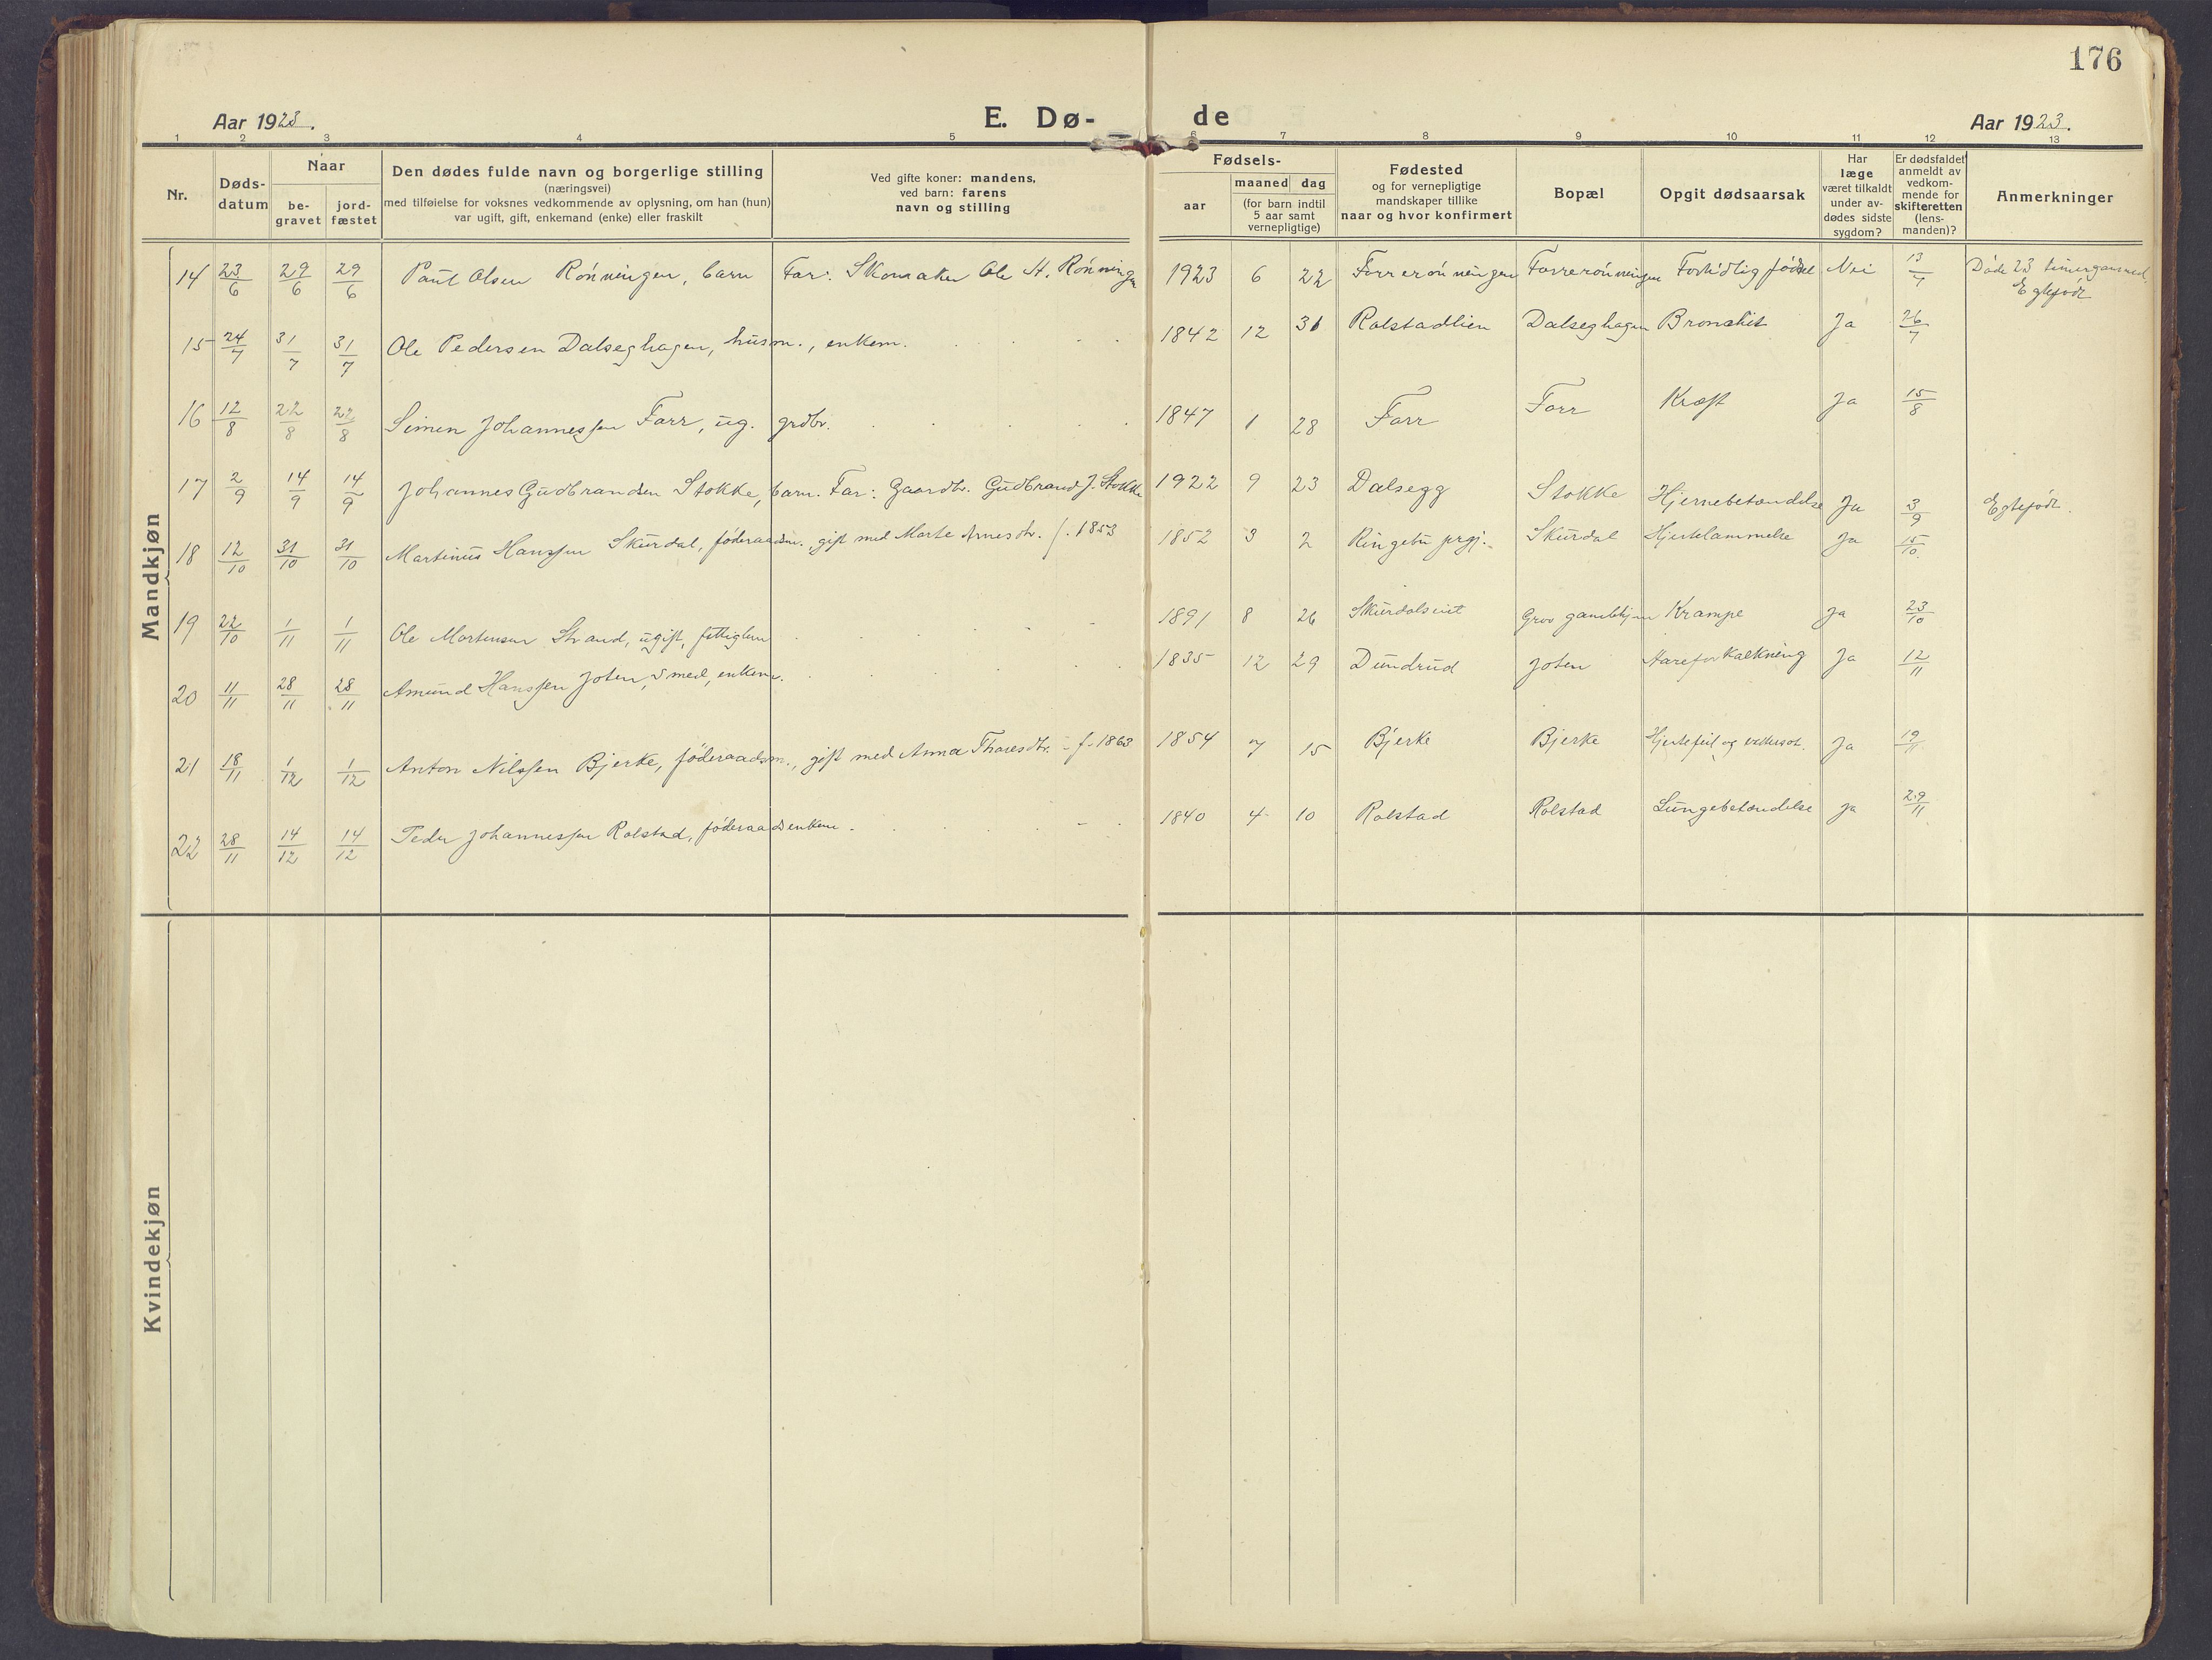 176
Aar 1923.
E. Dø-
de
Aar 1923.
1 2 3 4 5 6 7 8 9 10 11 12 13
Nr.
Døds-
datum
Naar
be-
gravet
jord-
fæstet
Den dødes fulde navn og borgerlige stilling
(næringsvei)
med tilføielse for voksnes vedkommende av oplysning, om han (hun)
var ugift, gift, enkemand (enke) eller fraskilt
Ved gifte koner: mandens,
ved barn: farens
navn og stilling
Fødsels-
aar
maaned dag
(for barn indtil
5 aar samt
vernepligtige)
Fødested
og for vernepligtige
mandskaper tillike
naar og hvor konfirmert
Bopæl
Opgit dødsaarsak
Har
læge
været tilkaldt
under av-
dødes sidste
sygdom?
Er dødsfaldet
anmeldt av
vedkom-
mende for
skifteretten
(lens-
manden)?
Anmerkninger
Mandkjøn
14 23/6 29/6 29/6 Paul Olsen Rønningen, barn Far: Skomaker Ole H. Rønningen 1923 6 22 Forrerønningen Forrerønningen Fortidlig fødsel Nei 13/7 Døde 23 timer gammel.
Egtefødt
15 24/7 31/7 31/7 Ole Pedersen Dalseghagen, husm., enkem. 1842 12 31 Rolstadlien Dalseghagen Bronchit Ja 26/7
16 12/8 22/8 22/8 Simen Johannessen Forr, ug. grdbr. 1847 1 28 Forr Forr Kræft Ja 15/8
17 2/9 14/9 14/9 Johannes Gudbrandsen Stokke, barn. Far: Gaardbr. Gudbrand J. Stokke 1922 9 23 Dalsegg Stokke Hjernebetændelse Ja 3/9 Egtefødt.
18 12/10 31/10 31/10 Martinus Hanssen Skurdal, føderaadsm., gift med Marte Arnesdtr. f. 1853 1852 3 2 Ringebu prgj. Skurdal Hjertelammelse Ja 15/10
19 22/10 1/11 1/11 Ole Mortensen Strand, ugift, fattiglem 1891 8 26 Skurdalseiet Grov gamlehjem Krampe Ja 23/10
20 11/11 28/11 28/11 Amund Hanssen Joten, smed, enkem. 1835 12 29 Dundrud Joten Aareforkalkning Ja 12/11
21 18/11 1/12 1/12 Anton Nilssen Bjerke, føderaadsm., gift med Anna Thoresdtr. - f. 1863 1854 7 15 Bjerke Bjerke Hjertefeil og vattersot. Ja 19/11
22 28/11 14/12 14/12 Peder Johannessen Rolstad, føderaadsenkem. 1840 4 10 Rolstad Rolstad Lungebetændelse Ja 29/11
Kvindekjøn